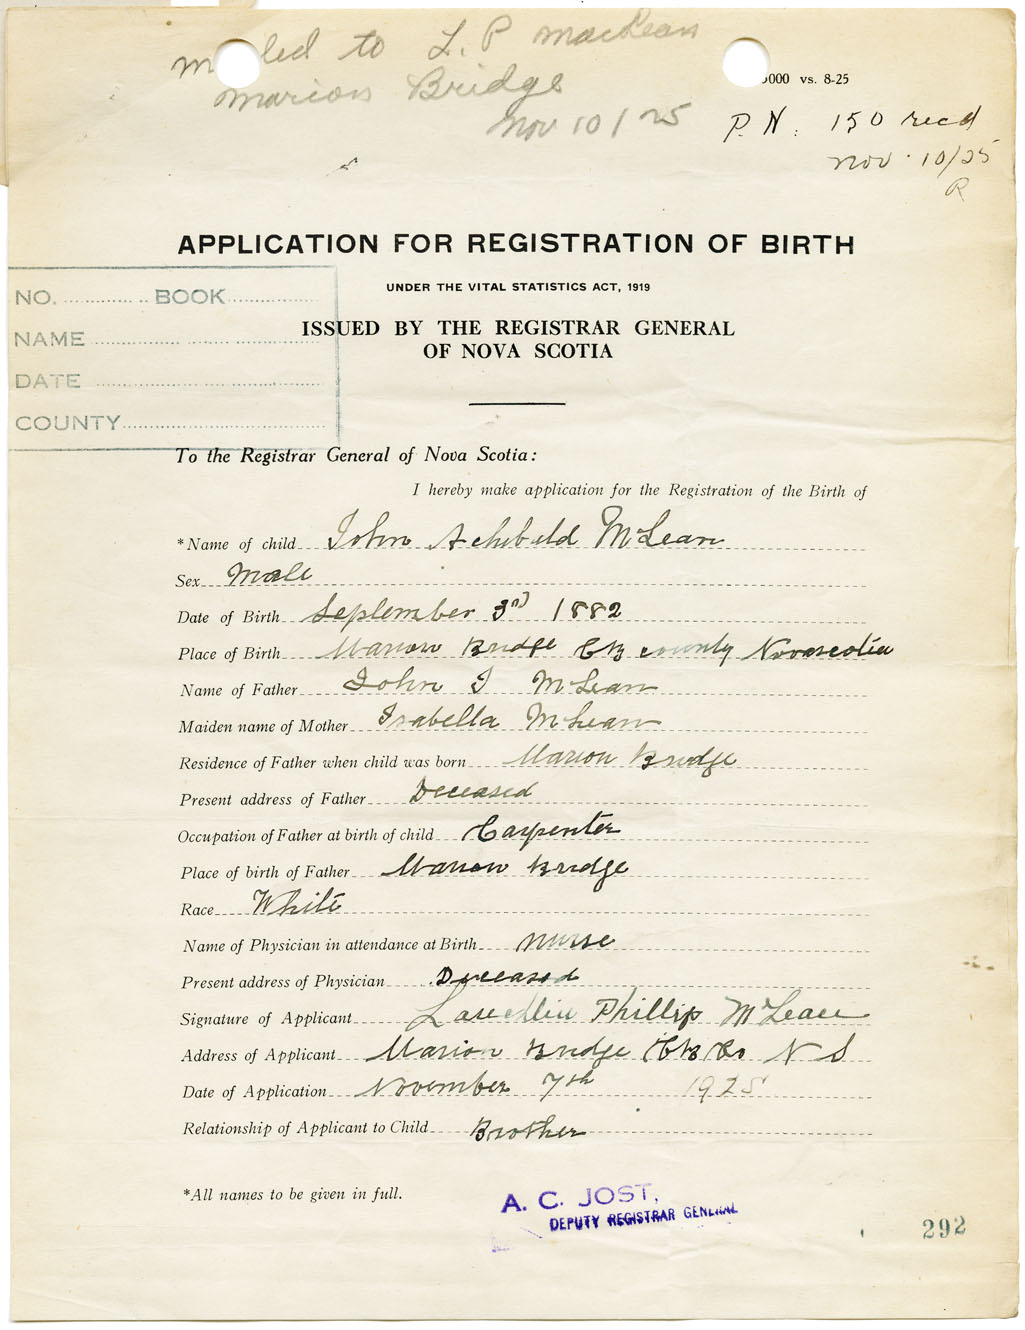 mailed to L. P MacLean
Marion Bridge
Nov 10/25
000 vs. 8-25
P. N. 150 recd
Nov. 10/25
R
APPLICATION FOR REGISTRATION OF BIRTH
UNDER THE VITAL STATISTICS ACT, 1919
ISSUED BY THE REGISTRAR GENERAL
OF NOVA SCOTIA
NO. BOOK
NAME
DATE
COUNTY
To the Registrar General of Nova Scotia:
I hereby make application for the Registration of the Birth of
*Name of child John Achibald McLean
Sex Male
Date of Birth September 3rd 1882
Place of Birth Marion Bridge CB county Novascotia
Name of Father John J McLean
Maiden name of Mother Isabella McLean
Residence of Father when child was born Marion Bridge
Present address of Father Deceased
Occupation of Father at birth of child Carpenter
Place of birth of Father Marion Bridge
Race White
Name of Physician in attendance at Birth nurse
Present address of Physician Deceased
Signature of Applicant Phillip McLean
Address of Applicant Marion Bridge CB Co N S
Date of Application November 7th 1925
Relationship of Applicant to Child Brother
*All names to be given in full.
A. C. JOST,
DEPUTY REGISTRAR GENERAL
292